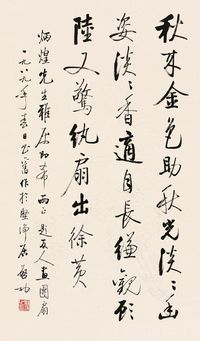 秋來金色助秋光淡〻幽
姿淡〻香適自長縑觀顧
陸又驚紈扇出徐黄
炳煌先生雅屬即希兩正 題友人畫團扇
一九八九年春日書舊作於堅净居 啓功